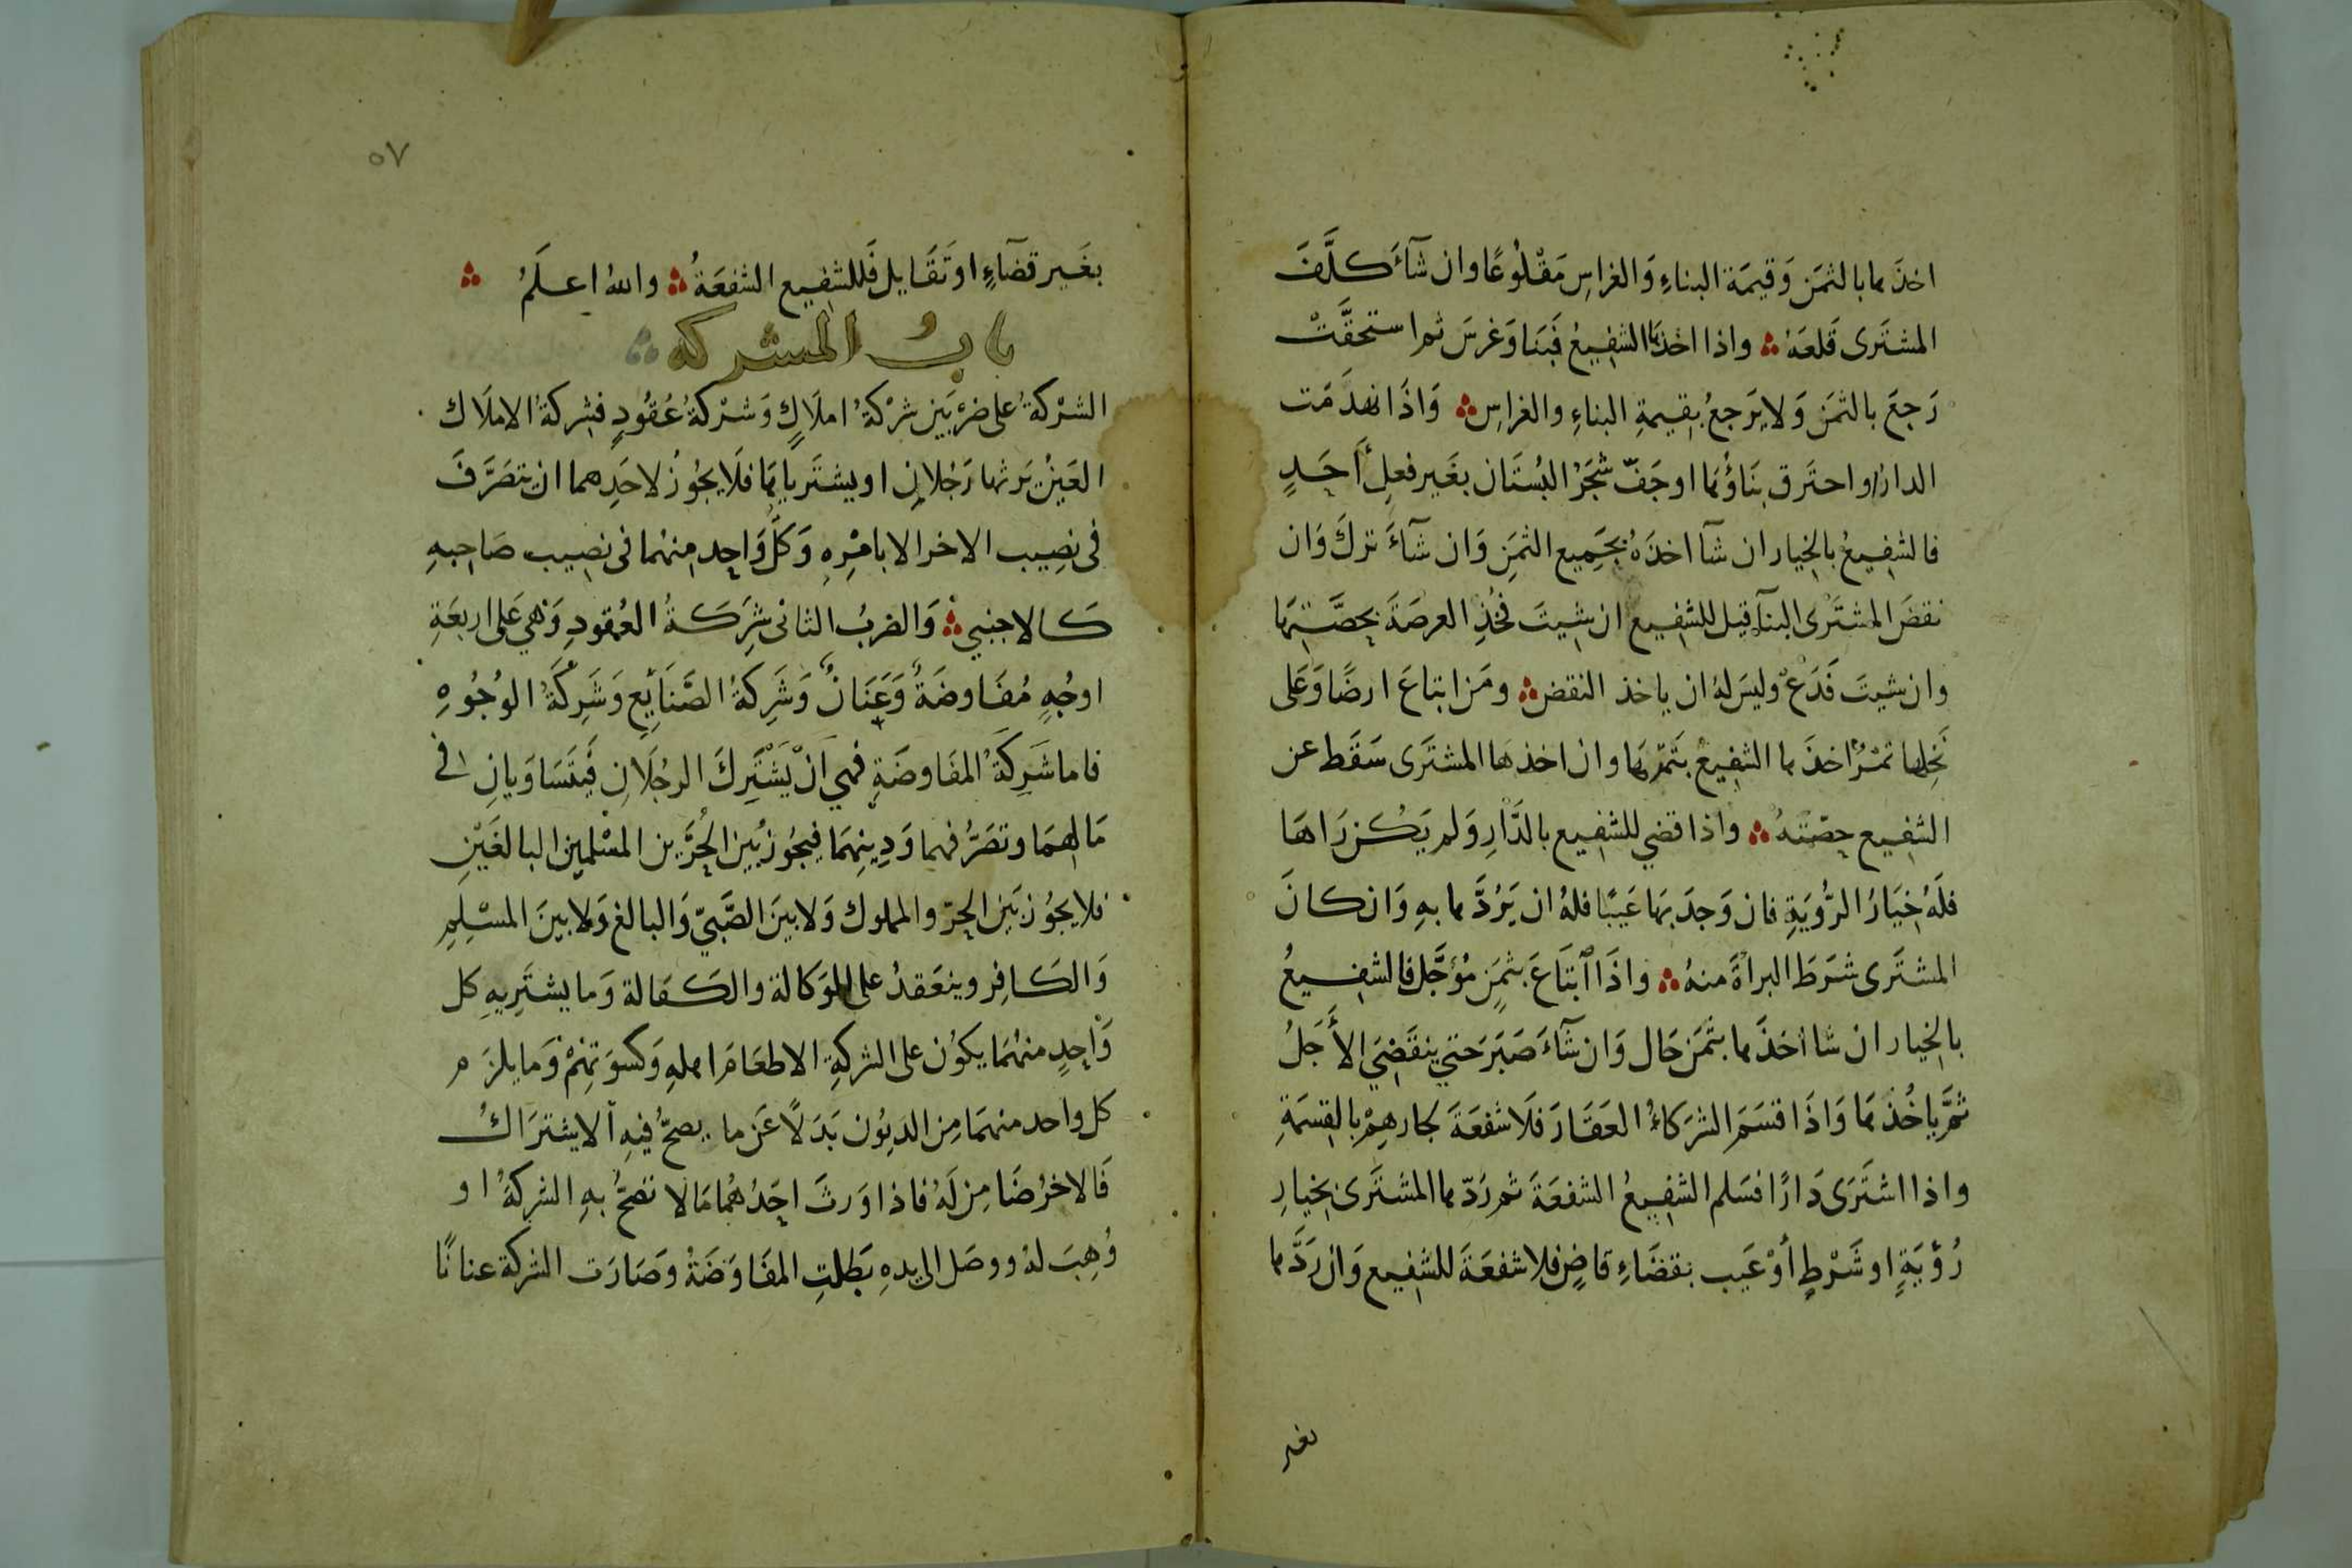 اخذها بالثمَن وَقيمَة البناءِ وَالغراسِ مَقْلُوعًا وان شآءَ كلَّفَ
المشتَرى قَلعَهُ ؞ واذا اخذَها الشفِيعُ فَبَنا وَغرسَ ثم استحقَّتْ
رَجعَ بالثمَن وَلا يَرجعُ بقِيمةِ البناءِ والغراسِ ؞ وَاذَا انهدَمَت
الدارُ او احتَرق بنَاؤُهَا او جَفّ شجَرُ البُستَان بغَير فعلِ أَحَدٍ
فالشفِيعُ بالخيار ان شآ اخذَهُ بجَمِيع الثمَنِ وَان شآءَ تركَ وَان
نقضَ المشتَرى البنآءَ قيل للشفِيع ان شِيتَ فَخُذِ العرصَةَ بحصَّتِهَا
وان شيتَ فَدَعْ وليسَ لهُ ان ياخذ النقض ؞ ومَن ابتاعَ ارضًا وَعَلى
نَخلِها ثمَرٌ اخذَها الشفِيعُ بثَمَرِهَا وان اخذهَا المشتَرى سَقَط عن
الشفِيع حِصّتهُ ؞ واذا قضي للشفِيع بالدَّارِ وَلم يَكُن رَاهَا
فلَهُ خيَارُ الرُّويَةِ فان وَجدَ بهَا عَيبًا فلهُ ان يَرُدَّها بهِ وَان كانَ
المشتَرى شرَطَ البرأةَ منهُ ؞ واذَا ابتَاعَ بثمَنٍ مُؤجَّل فالشفِيعُ
بالخيار ان شا اخذَها بثمَن حَال وَان شآءَ صَبَرَ حَتي ينقَضِيَ الأَجَلُ
ثمَّ ياخُذهَا وَاذَا قسَمَ الشرَكاءُ العَقَارَ فلَا شفعَةَ لجارهِمْ بالقِسمَةِ
واذا اشتَرَى دَارًا فسَلم الشفِيعُ الشفعَةَ ثم رَدّها المشتَرى بخيارِ
رُؤيَةٍ او شَرْطٍ أوْ عَيب بقضَاءِ قاضٍ فلا شفعَةَ للشفِيع وَان رَدَّها
بغير
٥٧
بغَير قضآءٍ او تَقَايل فَللشفِيع الشفعَةُ ؞ والله اعلَمُ ؞
باب الشركه ؞
الشرْكةُ على ضرْبَين شرْكةُ املَاكٍ وَشرْكةُ عُقُودٍ فشِركةُ الاملَاك
العَينُ يَرثها رَجُلانِ او يشتَريانهَا فلَا يجُوزُ لاحَدِهما ان يتصَرَّفَ
فى نصِيب الاخر الا بامْرِهِ وَكلُّ وَاحِد منهُما فى نصِيب صَاحبهِ
كالاجنبيِ ؞ وَالضربُ الثانى شرَكَةُ العُقودِ وَهي عَلى اربعَةِ
اوجُهٍ مُفَاوضَةٌ وَعَنَانٌ وَشَرِكةُ الصَّنَايِع وَشَرِكَةُ الوُجُوهِ
فاما شَرِكَةُ المفَاوضَةِ فهي اَنْ يَشْتَرِكَ الرجُلَانِ فَيتَسَاوَيانِ فى
مَالهمَا وتصَرُّفهما وَدِينِهمَا فيجُوزُ بَين الحُرَّين المسْلمين البالغَيْنِ
فلا يجُوز بَين الحرّ والمملوك وَلا بينَ الصَّبيّ وَالبالغ وَلا بينَ المسْلِمِ
وَالكافِر وينعَقدُ على الوَكالة والكفالة وَما يشتَرِيهِ كل
وَاحِدٍ منهُمَا يكوُن على الشركةِ الا طعَامَ اهلهِ وَكسوَتهِمْ وَما يلزَم
كل واحد منهمَا مِن الديُون بَدَلًا عَن ما يصحُّ فيهِ الاشترَاك
فَالاخرُ ضَامِن لَهُ فاذا وَرثَ احَدُهُمَا مَالا تصحُّ بهِ الشركةُ او
وُهِبَ لهُ ووصَل الى يدهِ بَطلتِ المفَاوَضَةُ وَصَارَت الشركة عنانًا